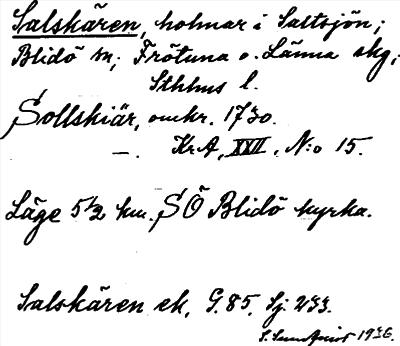 Salskären, holmar i Saltsjön;
Blidö sn; Frötuna o. Länna skg,
Sthlms l.
Sollskiär, omkr. 1730.
—. KrA, XXII, N:o 15.
Läge 5½ km. SÖ Blidö kyrka.
Salskären ek, G. 85, Sj. 233.
1936.